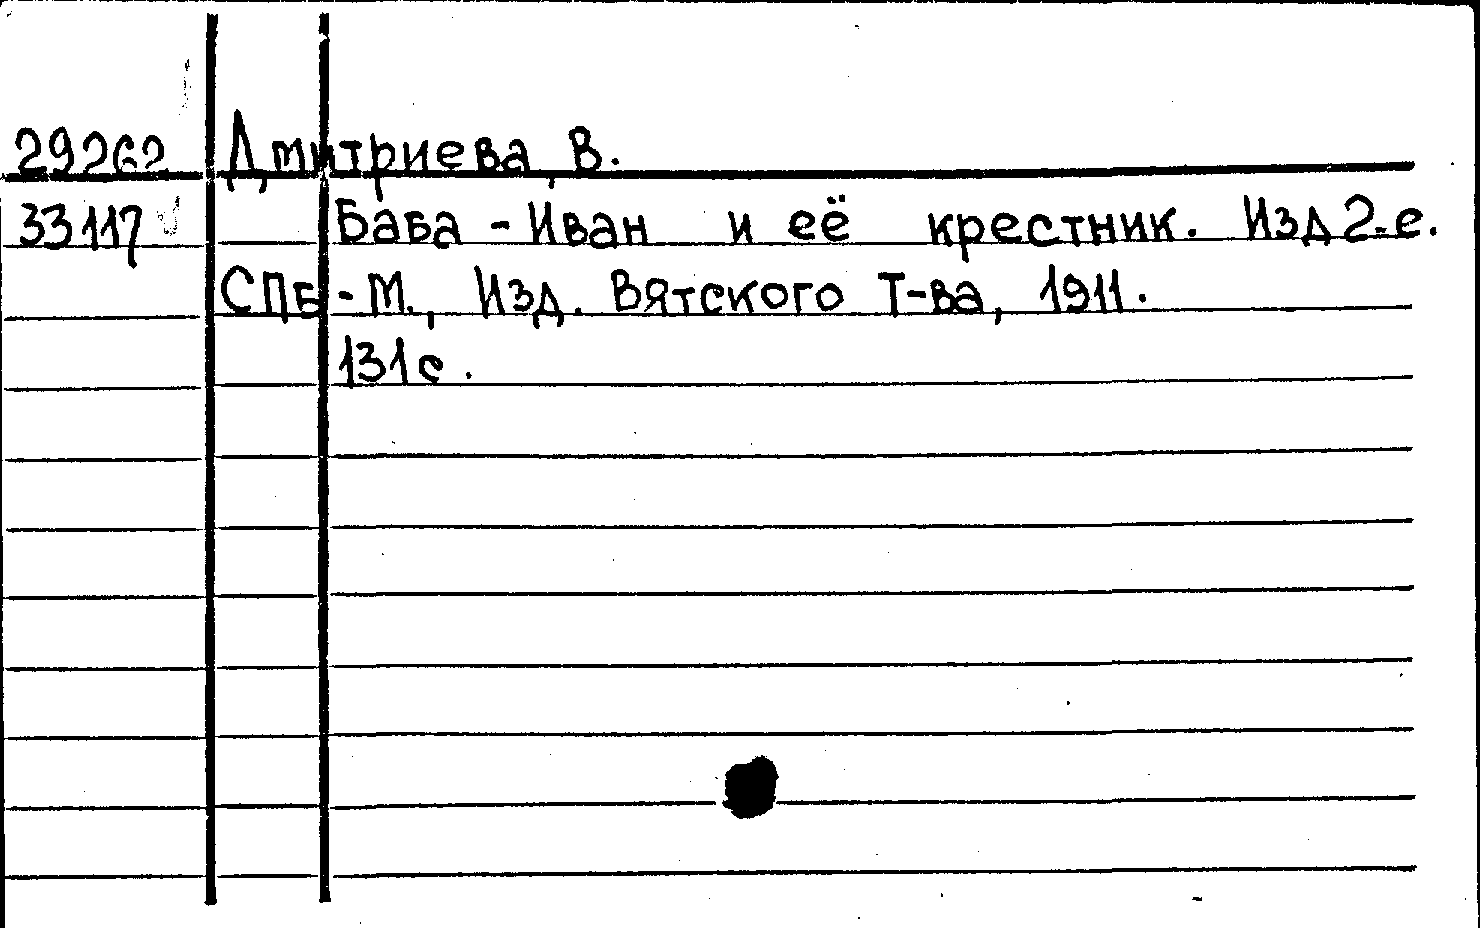 29262 Дмитриева, В.
33117 Баба-Иван и её крестник. Изд 2-е.
СПб-М., Изд. Вятского Т-ва, 1911.
131с.